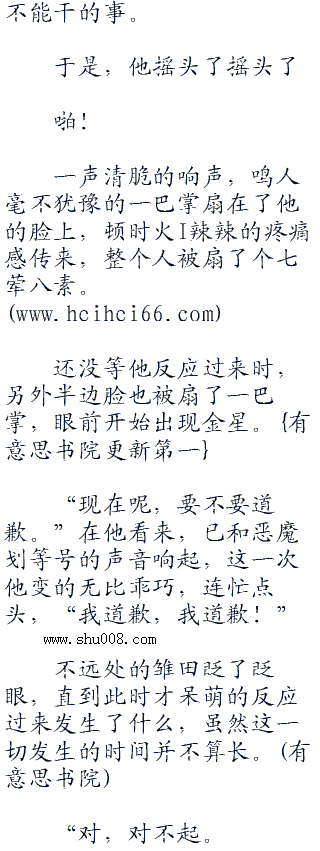 不能干的事。
于是，他摇头了摇头了
啪！
一声清脆的响声，鸣人
毫不犹豫的一巴掌扇在了他
的脸上，顿时火I辣辣的疼痛
感传来，整个人被扇了个七
荤八素。
(www.hcihci66.com)
还没等他反应过来时，
另外半边脸也被扇了一巴
掌，眼前开始出现金星。{有
意思书院更新第一}
“现在呢，要不要道
歉。”在他看来，已和恶魔
划等号的声音响起，这一次
他变的无比乖巧，连忙点
头，“我道歉，我道歉！”
www.shu008.com
不远处的雏田眨了眨
眼，直到此时才呆萌的反应
过来发生了什么，虽然这一
切发生的时间并不算长。(有
意思书院)
“对，对不起。